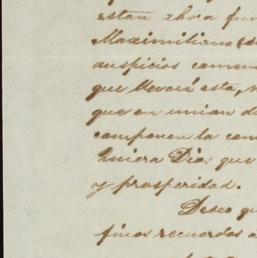 estan ahora fun
Maximiliano
auspicios comen
que llevará esta,
que en union d
componen la com
Quiera Dios que
y prosperidad.
Deseo qu
finos recuerdos a